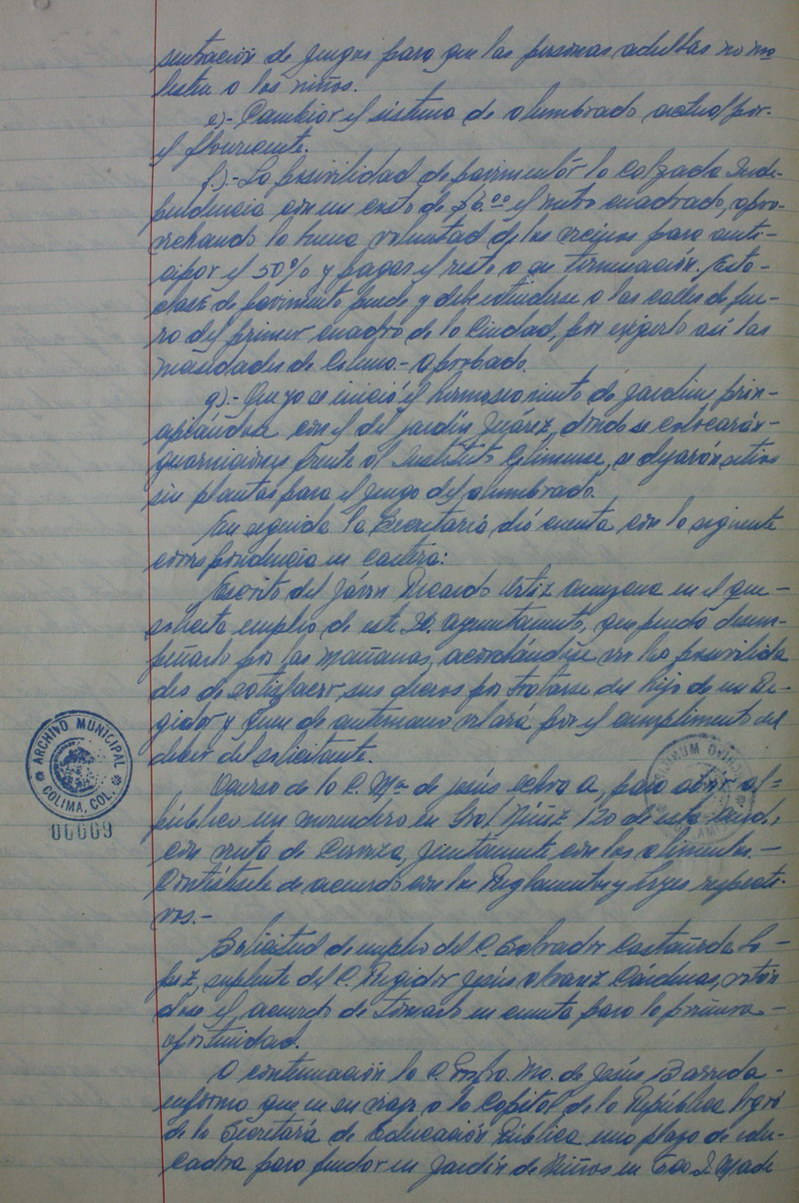 sentración de juegos para que las personas adultas no mo
lesten a los niños.
e).- Cambiar el sistema de alumbrado actual por-
el flouricente.
f).- La posivilidad de pavimentar la Calzada Inde-
pendencia con un costo de $6.00 el metro cuadrado, apro-
vechando la buena voluntad de los vecinos para anti-
cipar el 50% y pagar el resto a su terminación. Esta-
clase de pavimento puede y debe extenderse a las calles de fue-
ra del primer cuadro de la Ciudad, por exigirlo así las
necesidades de Colima.- Aprobado.
g).- Que ya se inició el hermoseamiento de jardines prin-
cipiándose con el del jardín Juárez, donde se colocarán-
guarniciones frente al Instituto Colimense, se dejarán sitios
sin plantas para el juego del alumbrado.
En seguida la Secretaría dió cuenta con la siguiente
correspondencia en cartera:
Escrito del Jóven Ricardo Ortiz en el que-
solicita empleo de este H. Ayuntamiento, que pueda desem-
peñarlo por las mañanas, acordándose ver las posivilida
des de satisfacer sus deseos por tratarse del hijo de un Re-
gidor y quien de antemano velará por el cumplimento del
deber del solicitante.
Ocurso de la C. Ma. de Jesús A, para abrir al-
público un merendero en Gral. Núñez 120 de esta
con venta de Cerveza, juntamente con los alimentos.-
Contéstele de acuerdo con los Reglamentos y Leyes respecti-
vos.-
Solicitud de empleo del C. Salvador Castañeda Ló-
pez, suplente del C. Regidor Jesús Alvarez Cárdenas,
dose el acuerdo de tomarlo en cuenta para la primera-
oportunidad.
A continuación la C. Profra. Ma. de Jesús Barreda-
informó que en su viaje a la Capital de la República logró
de la Secretaría de Educación Pública una plaza de edu-
cadora para fundar un Jardín de Niños en Fco. I. Made
ARCHIVO MUNICIPAL
COLIMA, COL.
00009